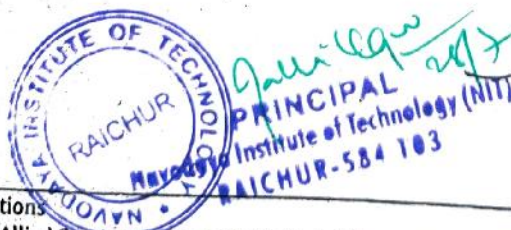 NAVODAYA INSTITUTE OF TECHNOLOGY
RAICHUR
PRINCIPAL
Navodaya Institute of Technology (NIT)
RAICHUR-584 103
tions